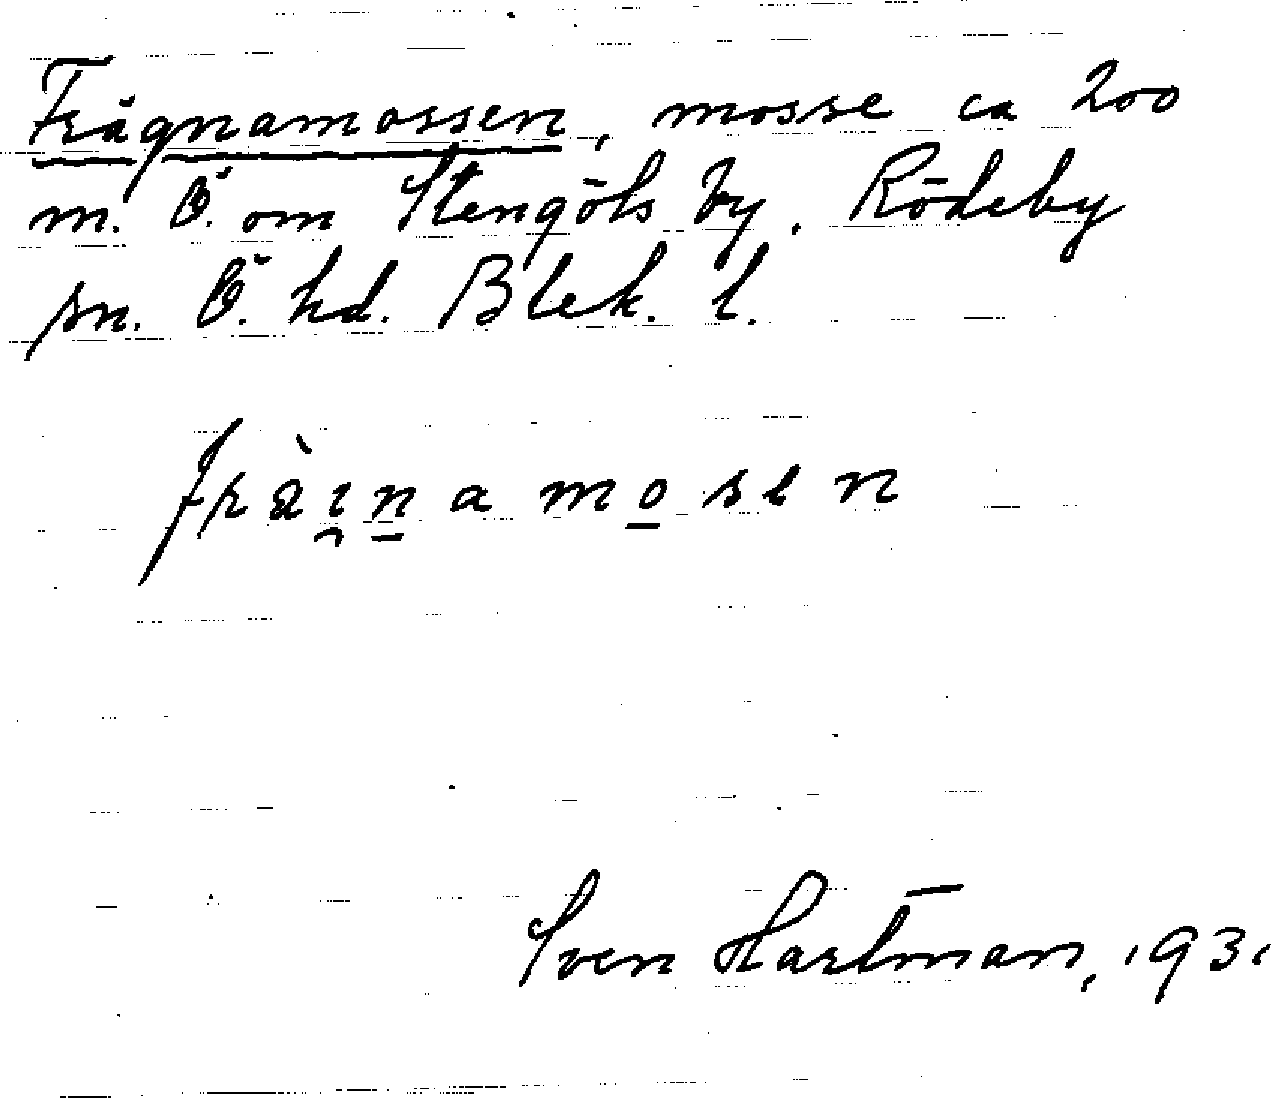 Frägnamossen, mosse ca 200
m. Ö. om Stengöls by. Rödeby
sn. Ö. hd. Blek. l.
fràɪ̯n̲a mo̲sen
Sven Hartman, 1931